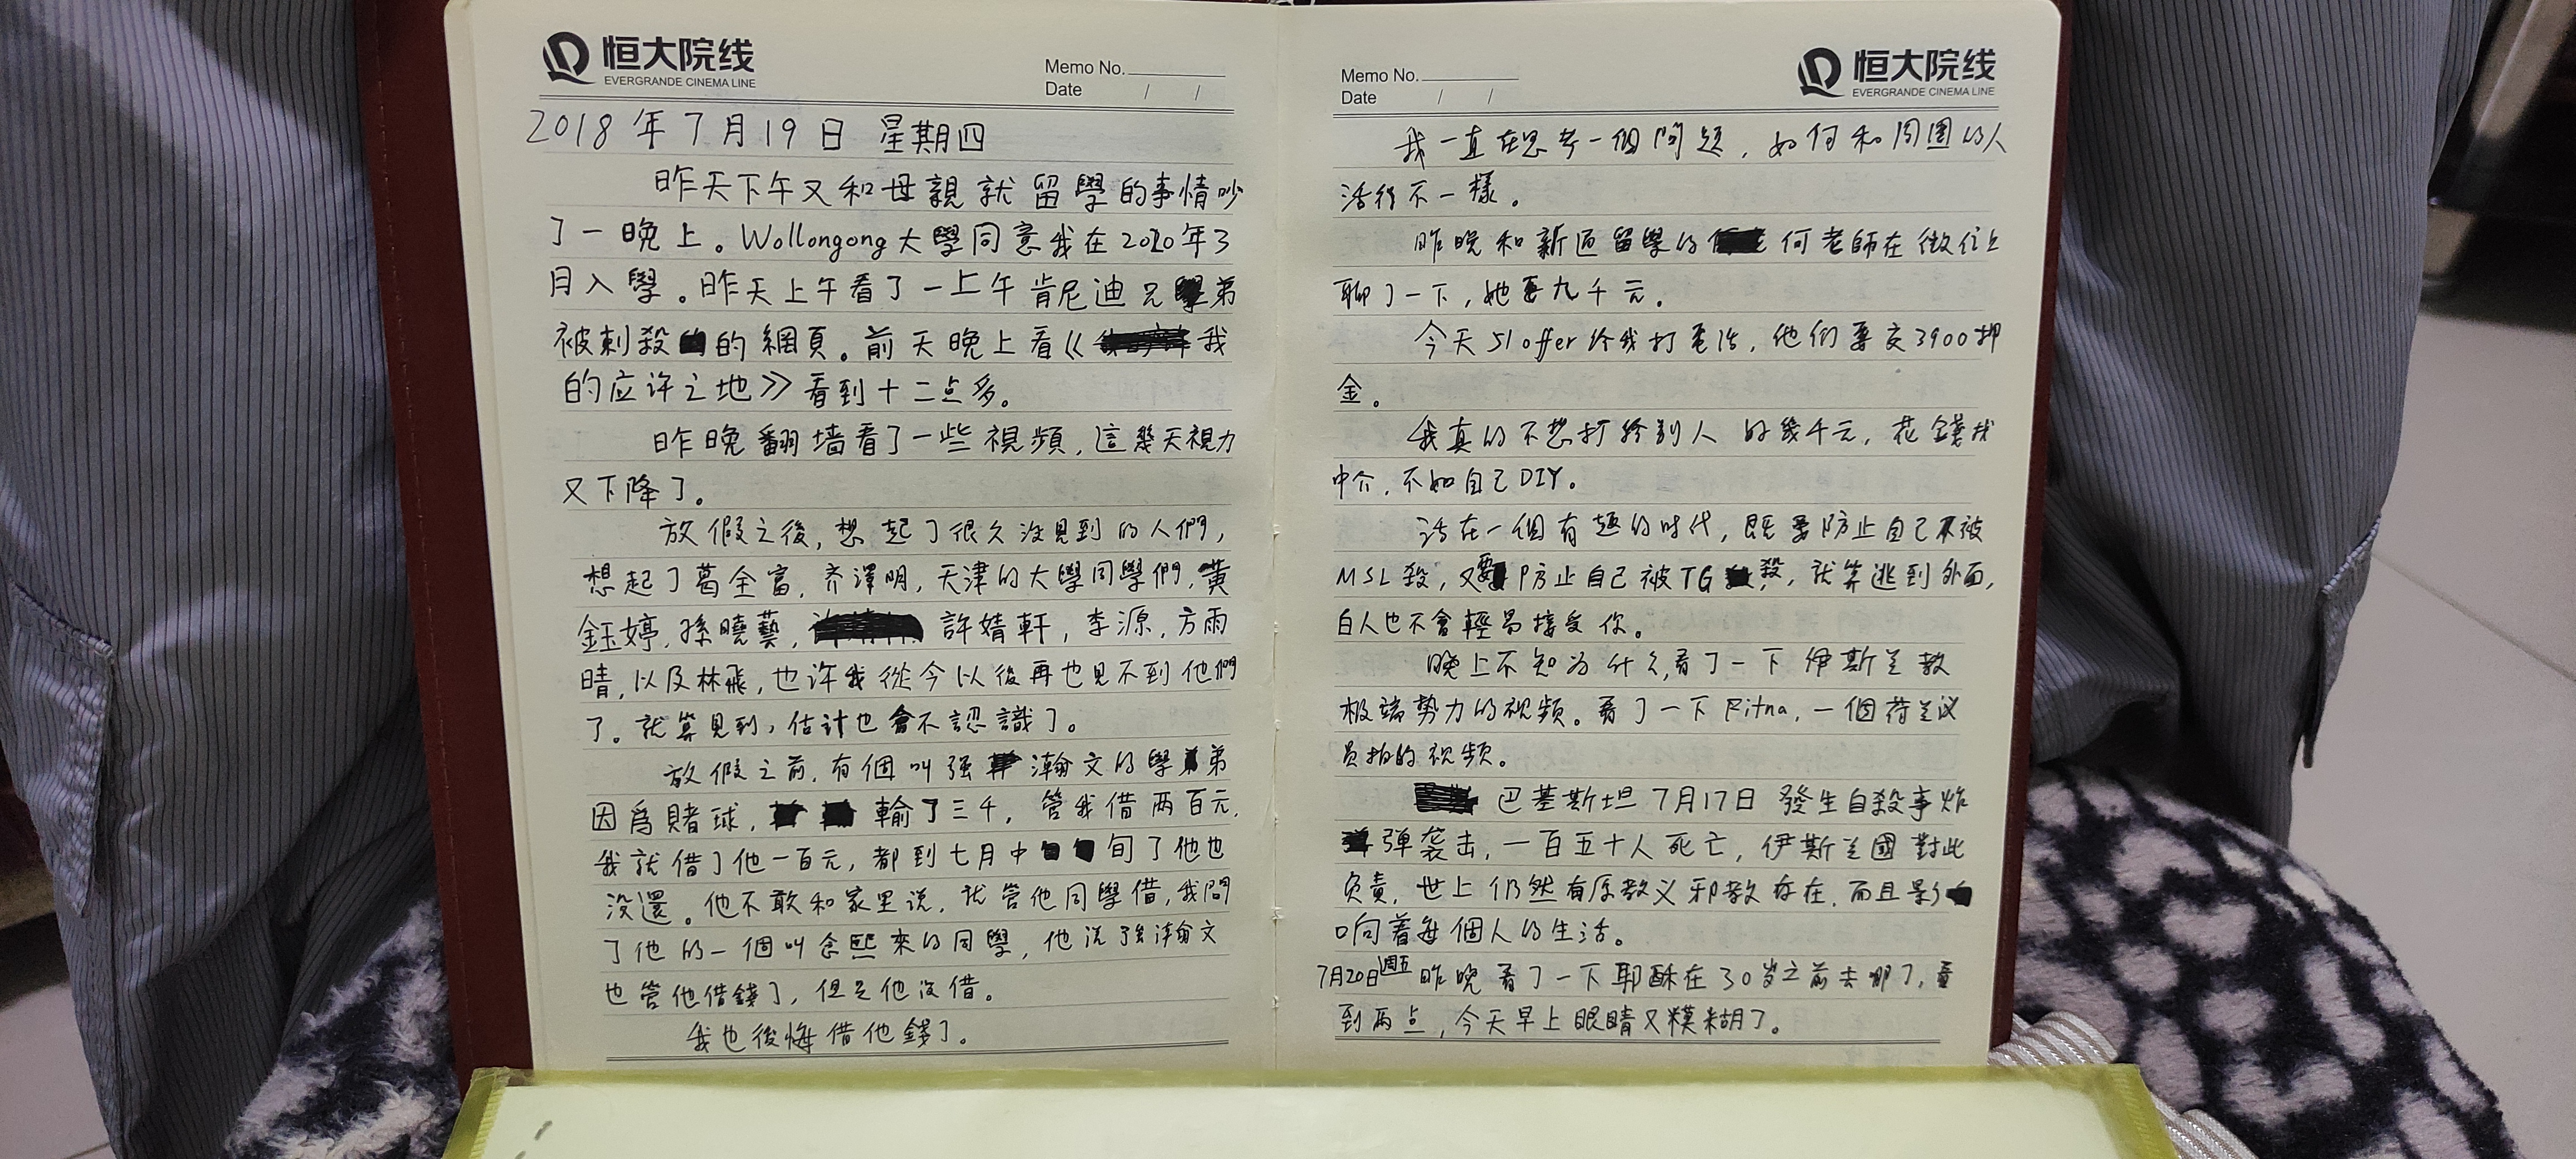 恒大院线
EVERGRANDE CINEMA LINE
Memo No.
Date / /
2018年7月19日 星期四
昨天下午又和母親就留學的事情吵
了一晚上。Wollongong大學同意我在2020年3
月入學。昨天上午看了一上午肯尼迪兄弟
被刺殺的網頁。前天晚上看《我
的应许之地》看到十二点多。
昨晚翻墙看了一些視頻,這幾天視力
又下降了。
放假之後,想起了很久没見到的人們,
想起了葛全富,齐澤明,天津的大學同學們,黄
鈺婷,孫曉藝,許婧軒,李源,方雨
晴,以及林飛,也许我從今以後再也見不到他們
了。就算見到,估计也會不認識了。
放假之前,有個叫强瀚文的學弟
因爲賭球,輸了三千,管我借两百元,
我就借了他一百元,都到七月中旬了他也
没還。他不敢和家里说,就管他同學借,我問
了他的一個叫 熙來的同學,他说 瀚文
也管他借錢了,但是他没借。
我也後悔借他錢了。
恒大院线
EVERGRANDE CINEMA LINE
Memo No.
Date / /
我一直在思考一個問題,如何和周圍的人
活得不一樣。
昨晚和新通留學的何老師在微信上
聊了一下,她要九千元。
今天51offer给我打電话,他们要交3900押
金。
我真的不想打给别人的幾千元,花錢找
中介,不如自己DIY。
活在一個有趣的时代,既要防止自己不被
MSL殺,又要防止自己被TG殺,就算逃到外面,
白人也不會輕易接受你。
晚上不知为什么,看了一下伊斯兰教
极端势力的视频。看了一下Fitna,一個荷兰议
员拍的视频。
巴基斯坦7月17日發生自殺事炸
弹袭击,一百五十人死亡,伊斯兰國對此
负责,世上仍然有原教义邪教存在,而且影
响着每個人的生活。
7月20日週五 昨晚看了一下耶酥在30岁之前去哪了,看
到两点,今天早上眼睛又模糊了。